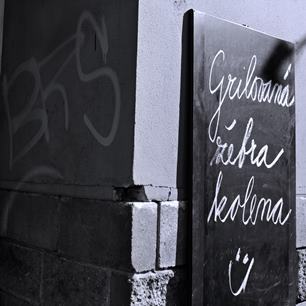 BKS
Grilovaná
žebra
kolena